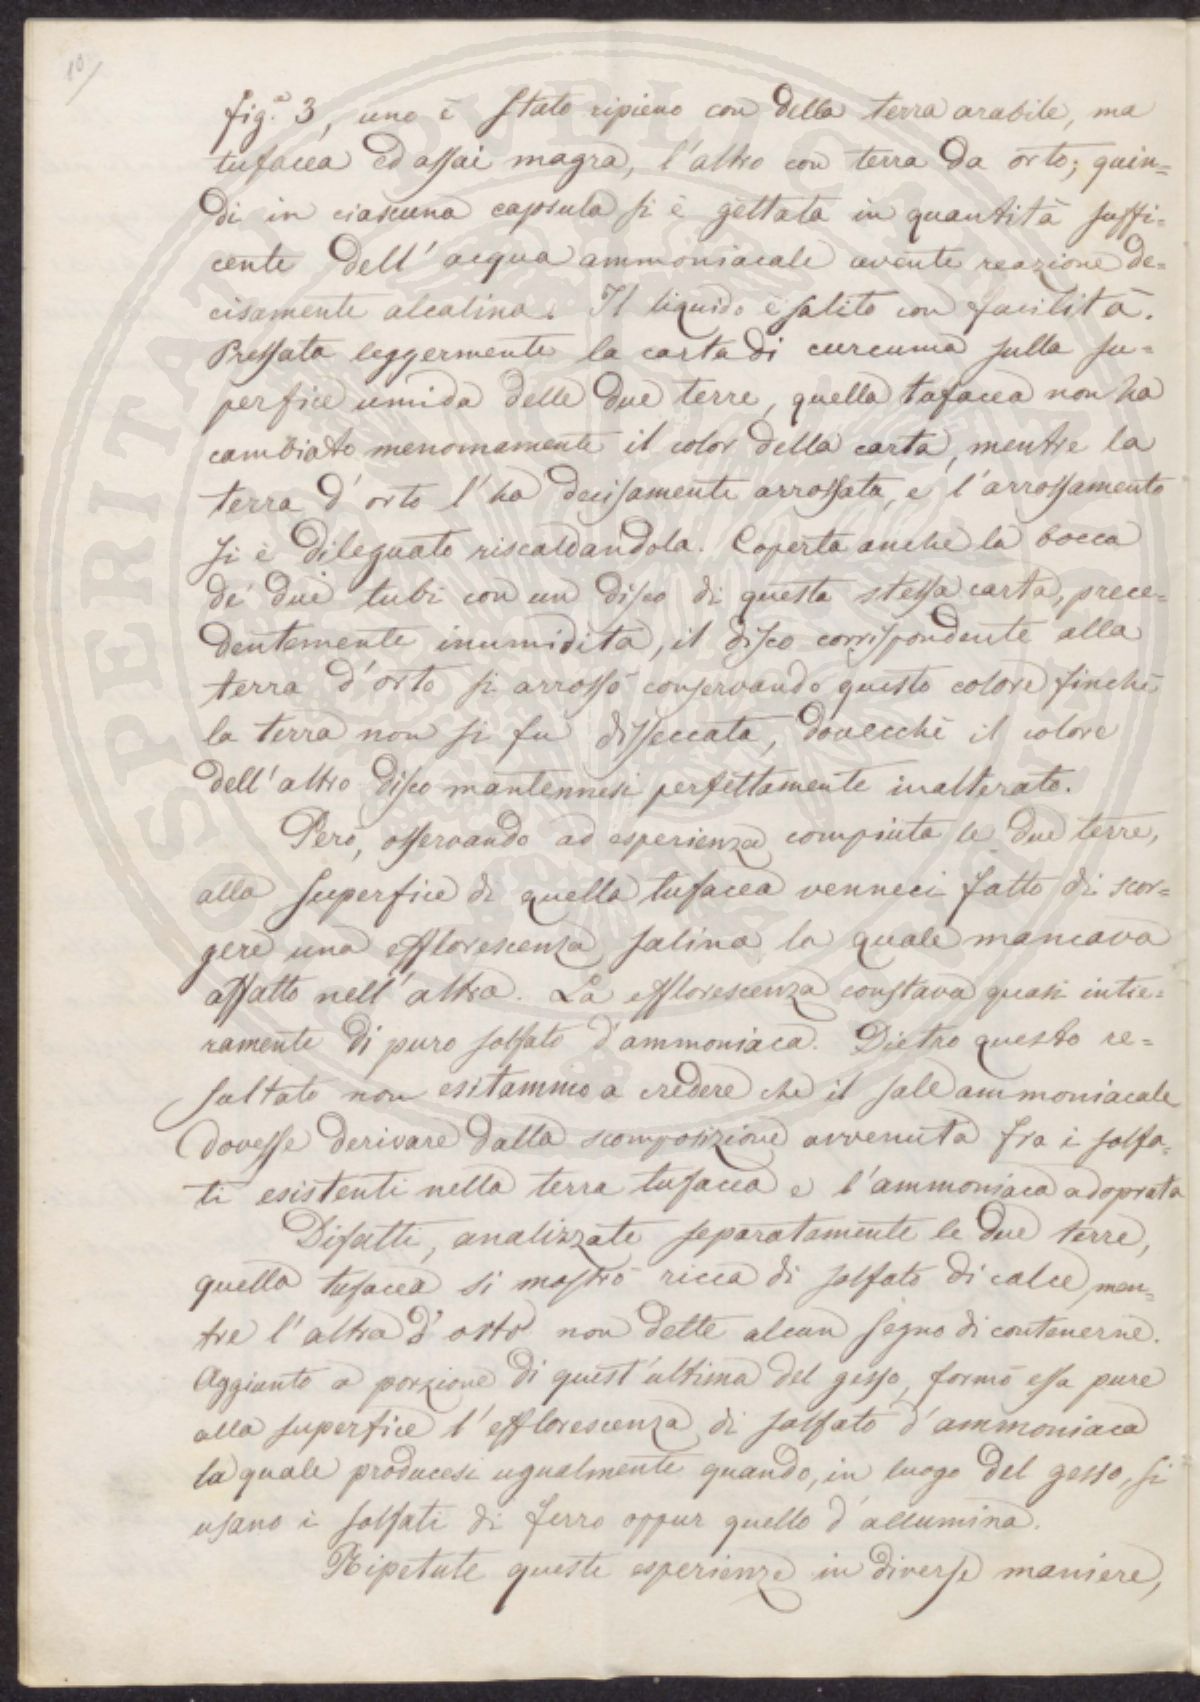 10/
fig.ª 3, uno è stato ripieno con della terra arabile, ma
tufacea ed assai magra, l'altro con terra da orto; quin=
di in ciascuna capsula si è gettata in quantità suffi=
cente dell'acqua ammoniacale avente reazione de=
cisamente alcalina. Il liquido è salito con facilità.
Pressata leggermente la carta di curcuma sulla su=
perfice umida delle due terre, quella tufacea non ha
cambiato menomamente il color della carta, mentre la
terra d'orto l'ha decisamente arrossata, e l'arrossamento
si è dileguato riscaldandola. Coperta anche la bocca
de' due tubi con un disco di questa stessa carta, prece=
dentemente inumidita, il disco corrispondente alla
terra d'orto si arrossò conservando questo colore finchè
la terra non si fu disseccata, dovecchè il colore
dell'altro disco mantennesi perfettamente inalterato.
Però, osservando ad esperienza compiuta le due terre,
alla superfice di quella tufacea venneci fatto di scor=
gere una efflorescenza salina la quale mancava
affatto nell'altra. La efflorescenza constava quasi intie=
ramente di puro solfato d'ammoniaca. Dietro questo re=
sultato non esitammo a credere che il sale ammoniacale
dovesse derivare dalla scomposizione avvenuta fra i solfa=
ti esistenti nella terra tufacea e l'ammoniaca adoprata
Difatti, analizzate separatamente le due terre,
quella tufacea si mostrò ricca di solfato di calce men=
tre l'altra d'orto non dette alcun segno di contenerne.
Aggiunto a porzione di quest'ultima del gesso, formò essa pure
alla superfice l'efflorescenza di solfato d'ammoniaca
la quale producesi ugualmente quando, in luogo del gesso, si
usano i solfati di ferro oppur quello d'allumina.
Ripetute queste esperienze in diverse maniere,